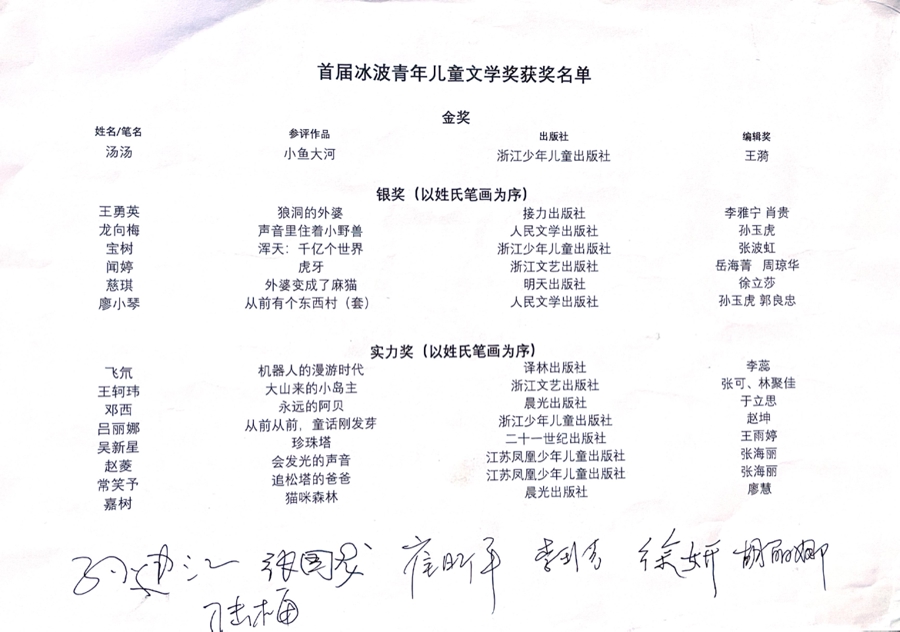 首届冰波青年儿童文学奖获奖名单
金奖
姓名/笔名 参评作品 出版社 编辑奖
汤汤 小鱼大河 浙江少年儿童出版社 王漪
银奖（以姓氏笔画为序）
王勇英 狼洞的外婆 接力出版社 李雅宁 肖贵
龙向梅 声音里住着小野兽 人民文学出版社 孙玉虎
宝树 浑天：千亿个世界 浙江少年儿童出版社 张波虹
闻婷 虎牙 浙江文艺出版社 岳海菁 周琼华
慈琪 外婆变成了麻猫 明天出版社 徐立莎
廖小琴 从前有个东西村（套） 人民文学出版社 孙玉虎 郭良忠
实力奖（以姓氏笔画为序）
飞氘 机器人的漫游时代 译林出版社 李蕊
王轲玮 大山来的小岛主 浙江文艺出版社 张可、林聚佳
邓西 永远的阿贝 晨光出版社 于立思
吕丽娜 从前从前，童话刚发芽 浙江少年儿童出版社 赵坤
吴新星 珍珠塔 二十一世纪出版社 王雨婷
赵菱 会发光的声音 江苏凤凰少年儿童出版社 张海丽
常笑予 追松塔的爸爸 江苏凤凰少年儿童出版社 张海丽
嘉树 猫咪森林 晨光出版社 廖慧
孙建江 张国龙 崔昕平 徐妍 胡丽娜
陆梅